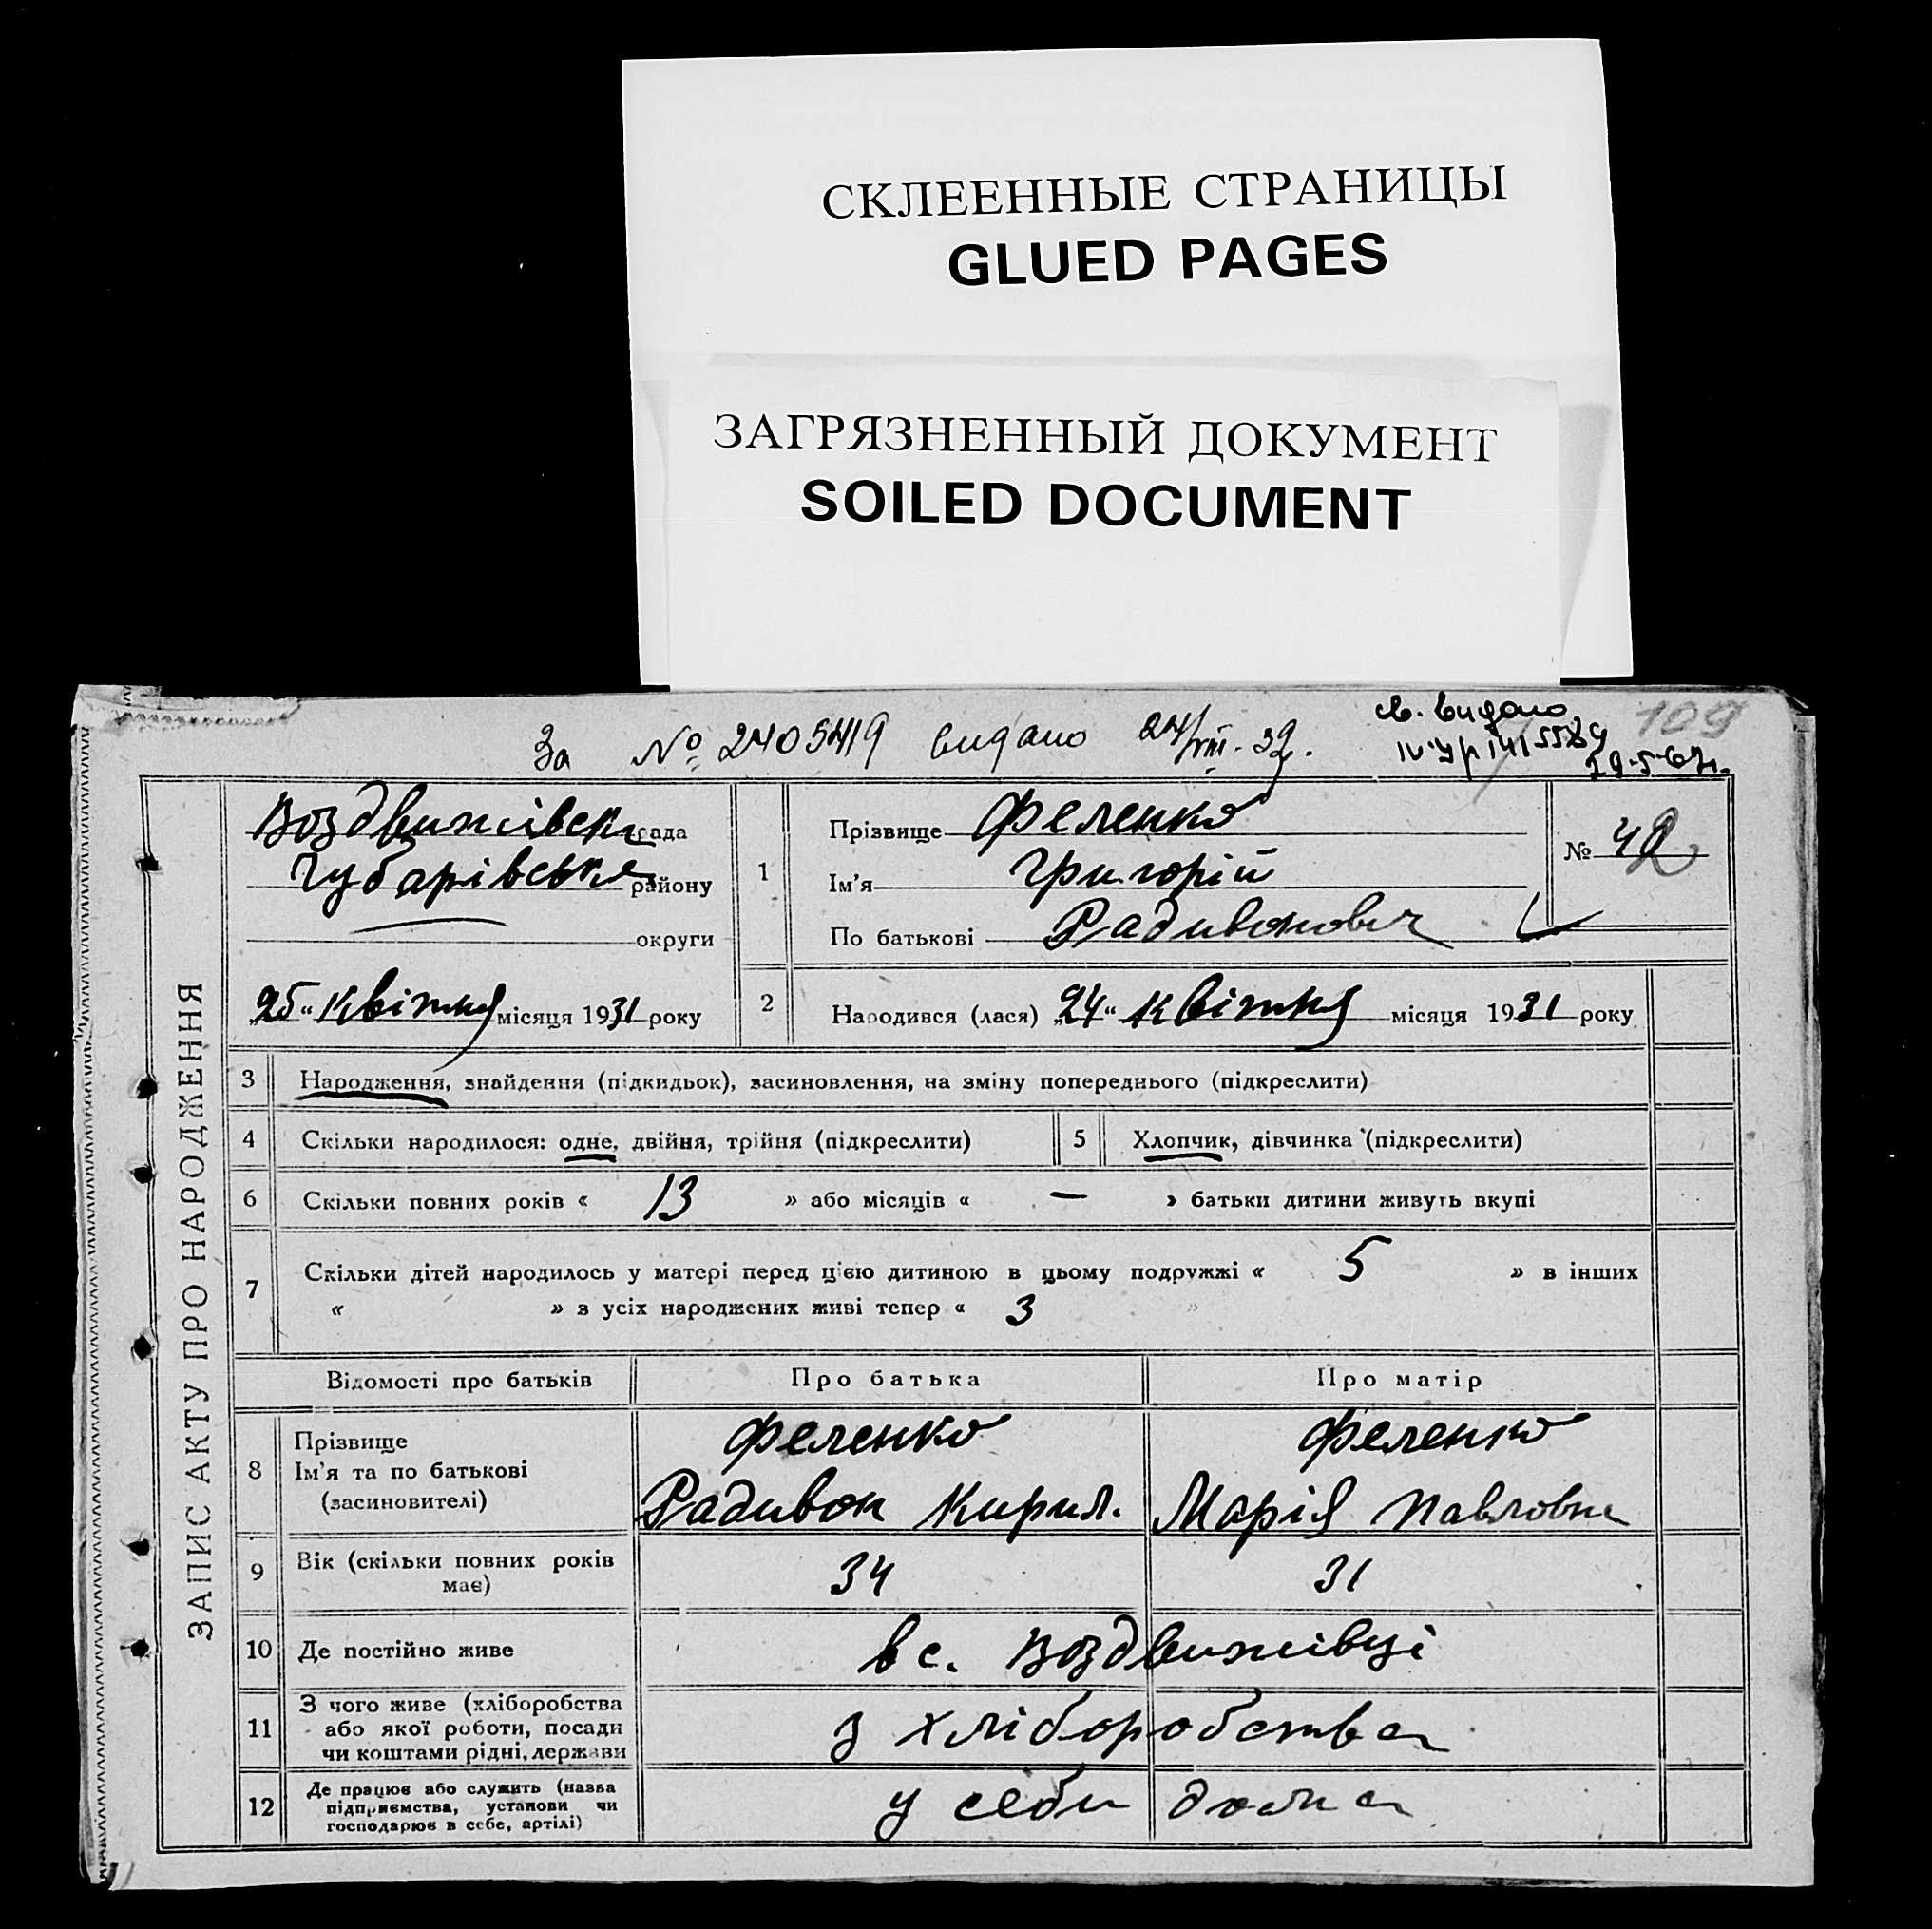 СКЛЕЕННЫЕ СТРАНИЦЫ
GLUED PAGES
ЗАГРЯЗНЕННЫЙ ДОКУМЕНТ
SOILED DOCUMENT
За № 2405419 видано 24/VIII-39.
св. видано
109
29-5-67г.
ЗАПИС АКТУ ПРО НАРОДЖЕННЯ
Воздвижівська рада
Чубарівська району
округи
„25“ Квітня місяця 1931 року
1
Прізвище Феленко
Ім’я Григорій
По батькові Радивонович
№ 42
2 Народився (лася) „24“ Квітня місяця 1931 року
3 Народження, знайдення (підкидьок), засиновлення, на зміну попереднього (підкреслити)
4 Скільки народилося: одне, двійня, трійня (підкреслити) 5 Хлопчик, дівчинка (підкреслити)
6 Скільки повних років « 13 » або місяців « — » батьки дитини живуть вкупі
7 Скільки дітей народилось у матері перед цією дитиною в цьому подружжі « 5 » в інших
« » з усіх народжених живі тепер « 3 »
Відомості про батьків Про батька Про матір
8 Прізвище Феленко Феленко
Ім’я та по батькові Радивон Кирил. Марія Павловна
(засиновителі)
9 Вік (скільки повних років має) 34 31
10 Де постійно живе в с. Воздвижівці
11 З чого живе (хліборобства
або якої роботи, посади з хліборобства
чи коштами рідні, держави
12 Де працює або служить (назва
підприємства, установи чи у себи дома
господарює в себе, артілі)